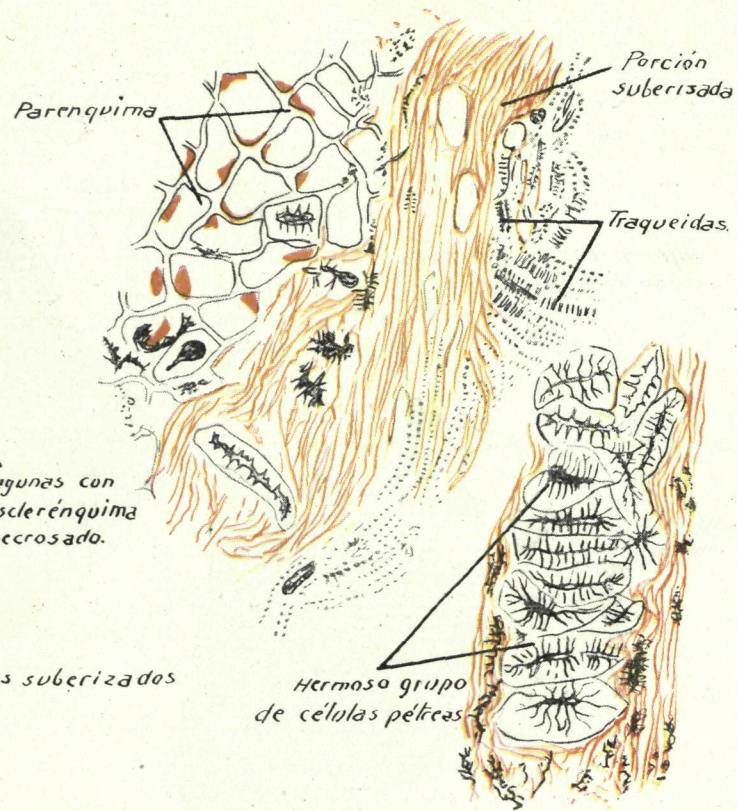 Parenquima
Porción
suberisada
Traqueidas.
gunas con
sclerénquima
ecrosado.
s suberizados
Hermoso grupo
de células pétreas